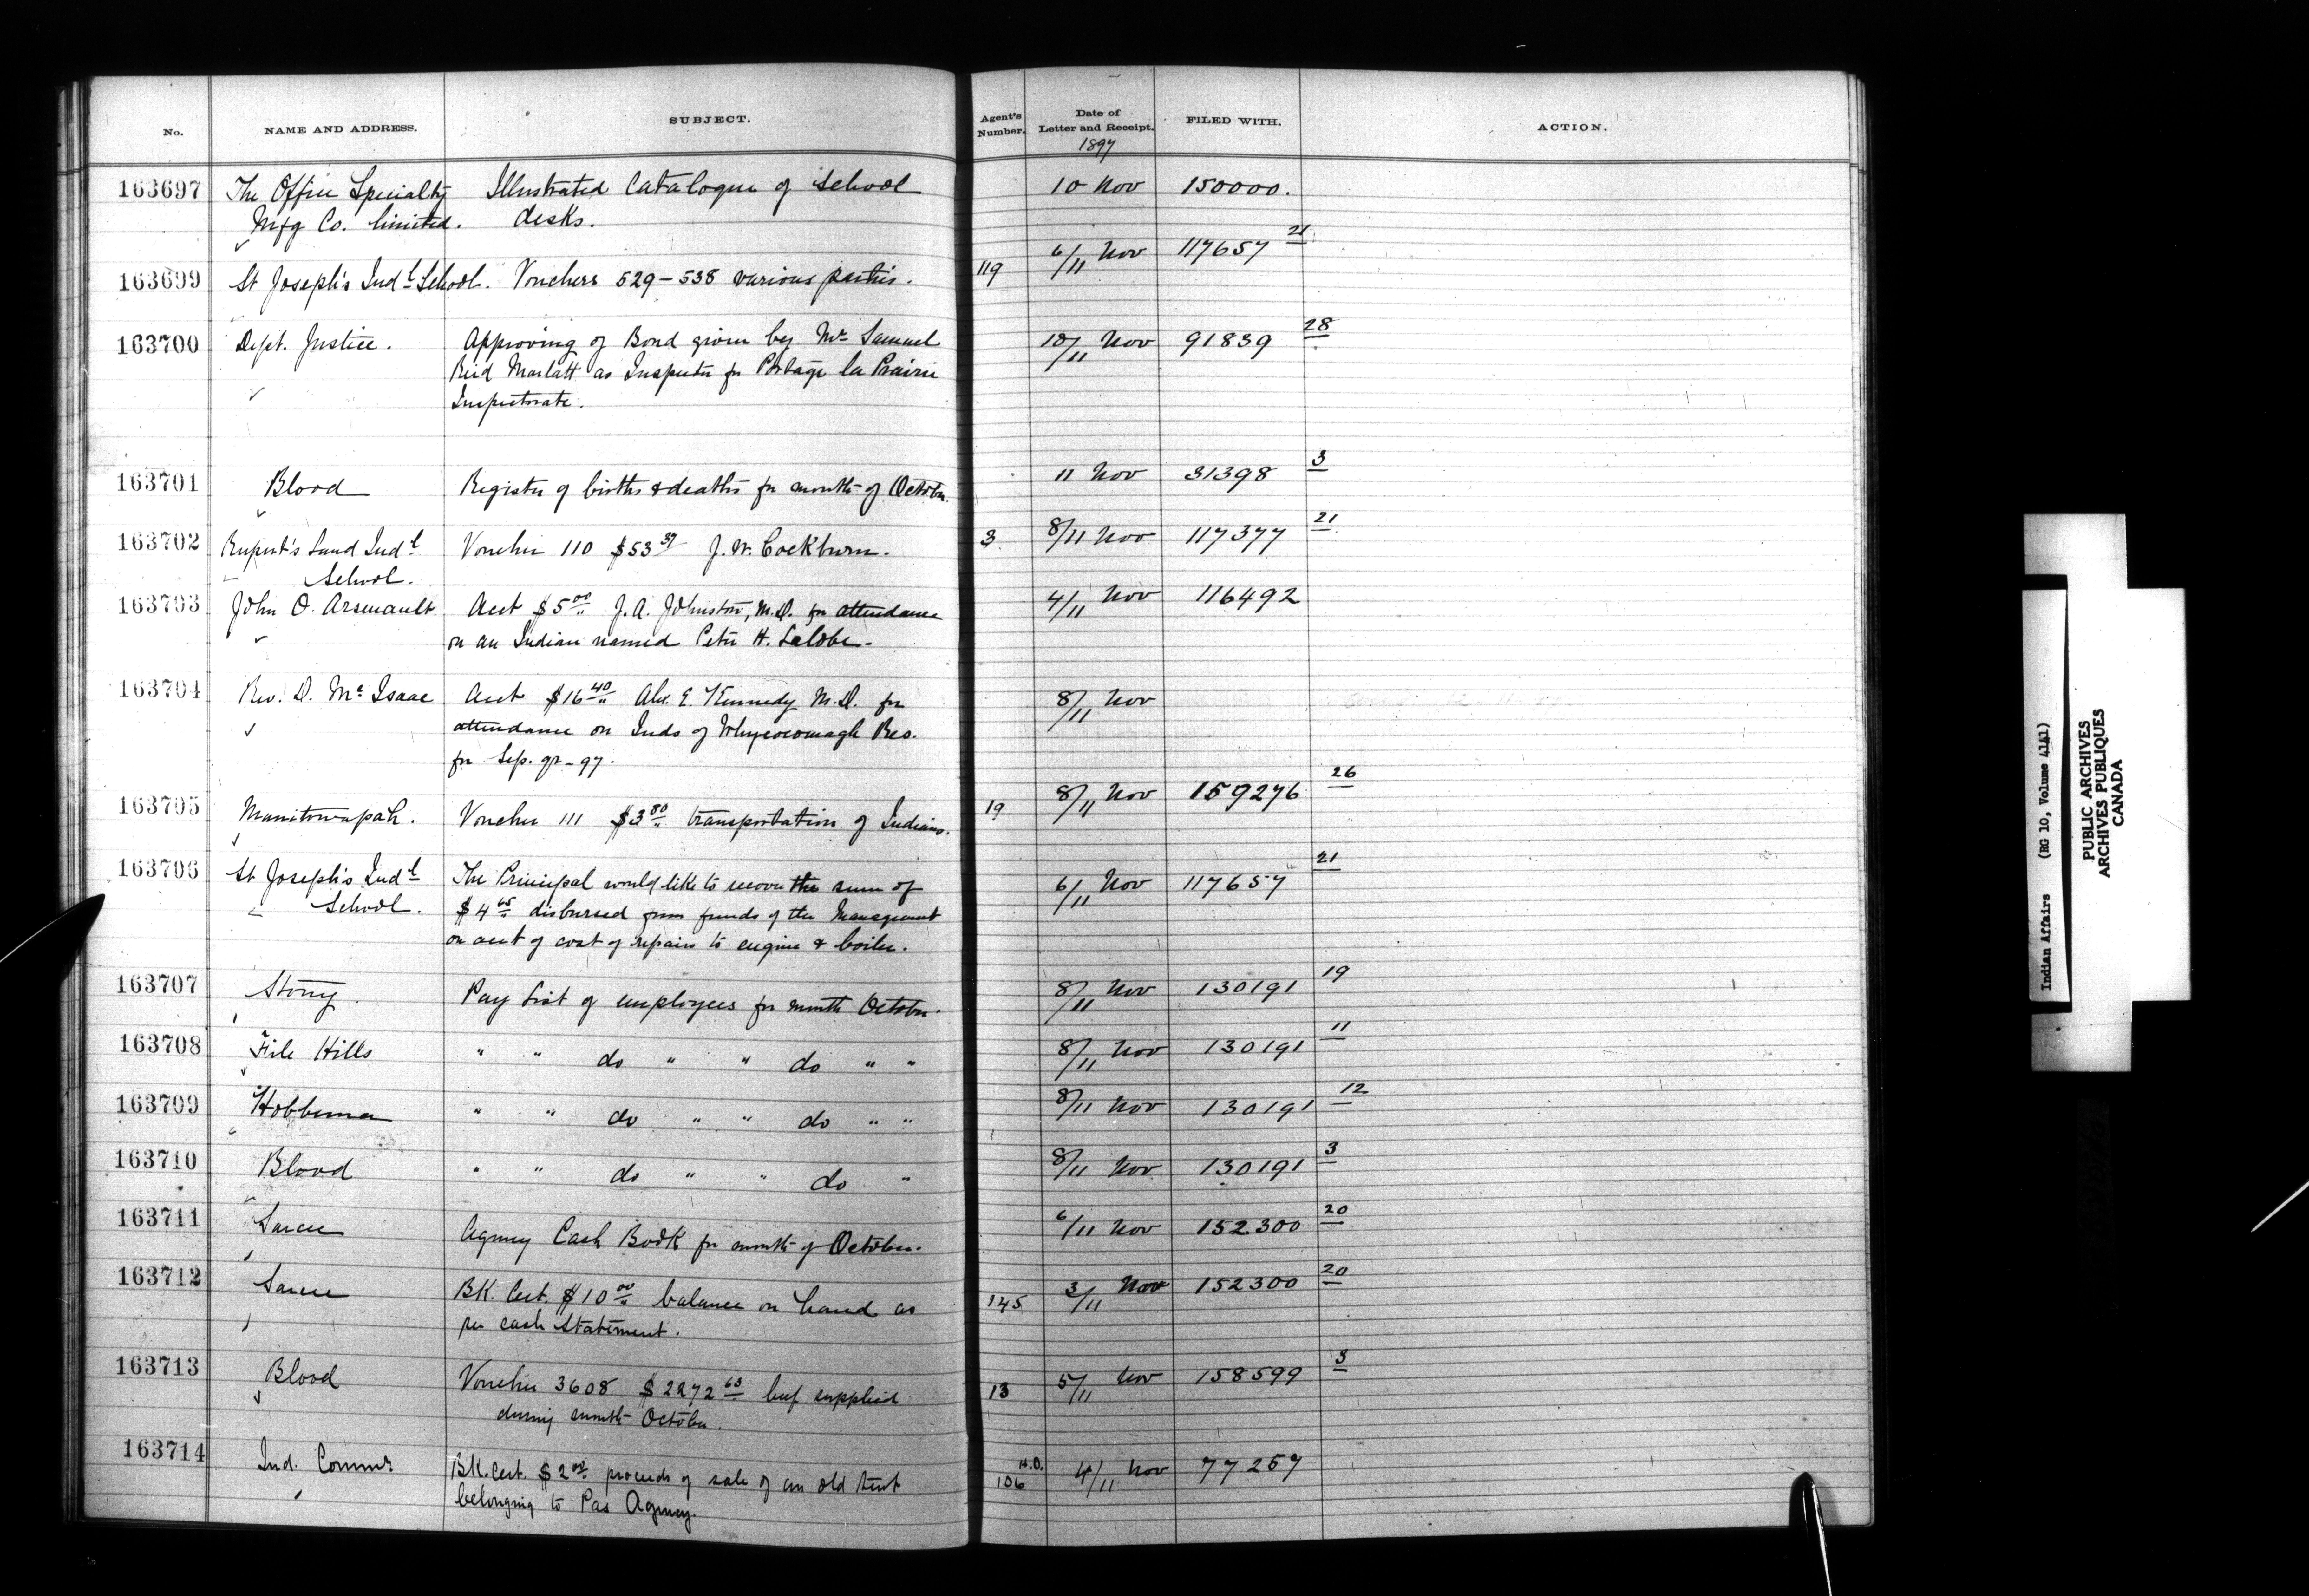 No. NAME AND ADDRESS. SUBJECT. Agent's Number. Date of Letter and Receipt. FILED WITH. ACTION.
1897
163697 The Office Specialty Illustrated Catalogue of School 10 Nov 150000.
Mfg Co. limited. desks.
163699 St Joseph's Indl School. Vouchers 529-538 various parties. 119 6/11 Nov 117657 21
163700 Dept. Justice. Approving of Bond given by Mr Samuel 10/11 Nov 91839 28
Reid Marlatt as Inspector for Portage la Prairie
Inspectorate.
163701 Blood Register of births & deaths for month of October. 11 Nov 31398 3
163702 Rupert's Land Indl Voucher 110 $53 37 J. W. Cockburn. 3 8/11 Nov 117377 21
School.
163703 John O. Arsenault Acct $5 00 J. A. Johnston, M.D. for attendance 4/11 Nov 116492
on an Indian named Peter H. Labobe.
163704 Rev. D. Mc Isaac Acct $16 40 Alex. E. Kennedy M.D. for 8/11 Nov
attendance on Inds of Whycocomagh Res.
for Sep. qr - 97.
163705 Manitowapah. Voucher 111 $3 80 transportation of Indians. 19 8/11 Nov 159276 26
163706 St Joseph's Indl The Principal would like to recover the sum of 6/11 Nov 117657 21
School. $4 65 disbursed from funds of the Management
on acct of cost of repairs to engine & boiler.
163707 Stony. Pay List of employees for month October. 8/11 Nov 130191 19
163708 File Hills " " do " " do " " 8/11 Nov 130191 11
163709 Hobbema " " do " " do " " 8/11 Nov 130191 12
163710 Blood " " do " " do " 8/11 Nov 130191 3
163711 Sarcee Agency Cash Book for month of October. 6/11 Nov 152300 20
163712 Sarcee BK. Cert. $10 00 balance on hand as 145 3/11 Nov 152300 20
per cash statement.
163713 Blood Voucher 3608 $2272 63 beef supplied 13 5/11 Nov 158599 3
during month October.
163714 Ind. Commr BK. Cert. $2 00 proceeds of sale of an old tent H.O. 106 4/11 Nov 77257
belonging to Pas Agency.
Indian Affairs (RG 10, Volume 4141)
PUBLIC ARCHIVES
ARCHIVES PUBLIQUES
CANADA